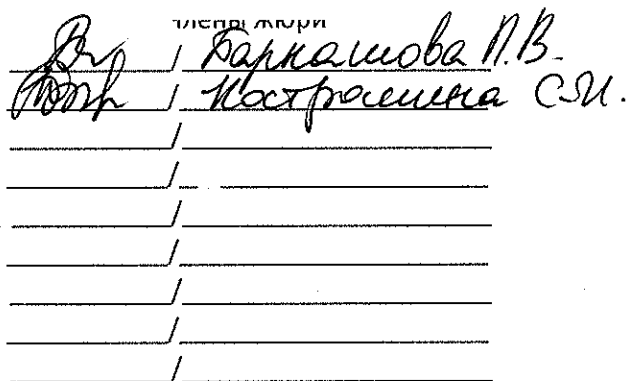 члены жюри
/ Барнашова Л.В.
/ Костромина С.И.
/
/
/
/
/
/
/